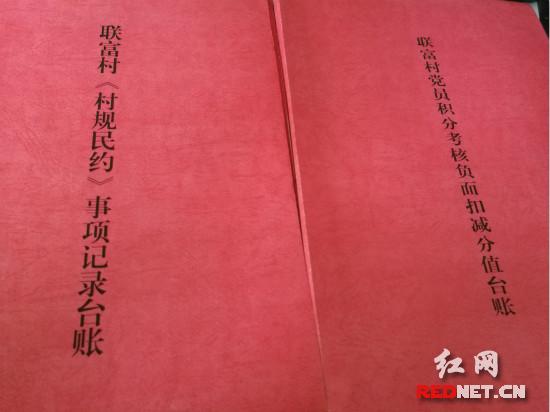 联富村《村规民约》事项记录台账
联富村党员积分考核负面扣减分值台账
红网
REDNET.CN